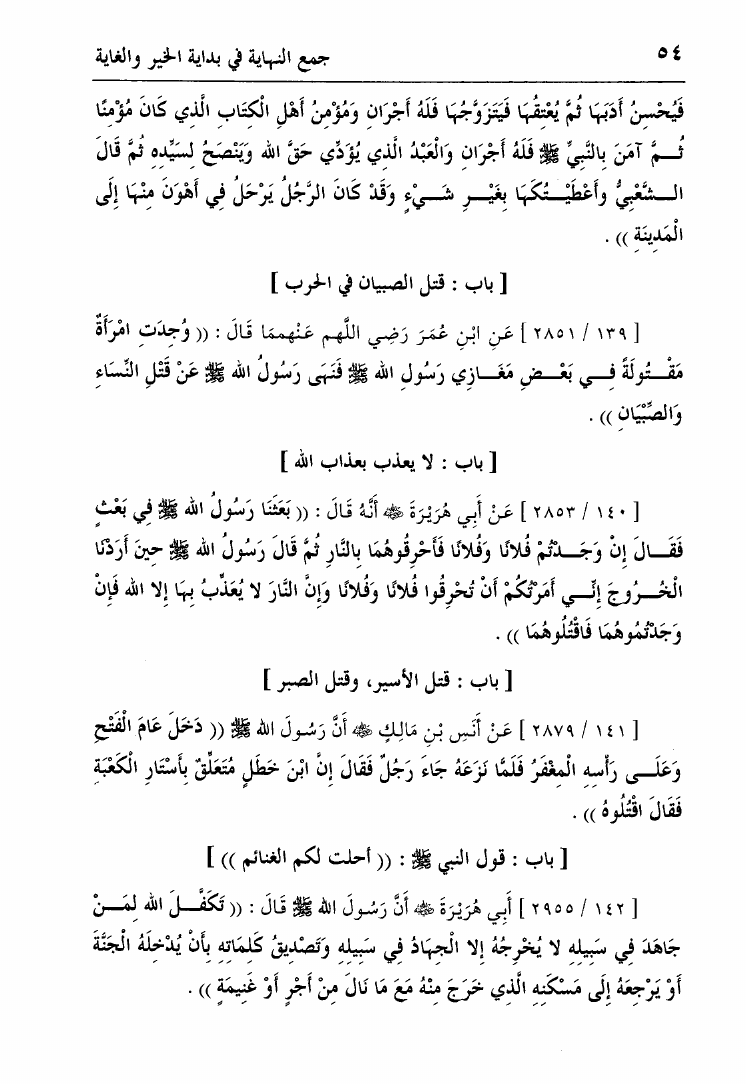 ٥٤ جمع النهاية في بداية الخير والغاية
فَيُحْسِنُ أَدَبَهَا ثُمَّ يُعْتِقُهَا فَيَتَزَوَّجُهَا فَلَهُ أَجْرَانِ وَمُؤْمِنُ أَهْلِ الْكِتَابِ الَّذِي كَانَ مُؤْمِنًا
ثُمَّ آمَنَ بِالنَّبِيِّ ﷺ فَلَهُ أَجْرَانِ وَالْعَبْدُ الَّذِي يُؤَدِّي حَقَّ الله وَيَنْصَحُ لِسَيِّدِه ثُمَّ قَالَ
الشَّعْبِيُّ وأَعْطَيْتُكَهَا بِغَيْرِ شَيْءٍ وَقَدْ كَانَ الرَّجُلُ يَرْحَلُ فِي أَهْوَنَ مِنْهَا إِلَى
الْمَدِينَةِ )) .
[ باب : قتل الصبيان في الحرب ]
[ ١٣٩ / ٢٨٥١ ] عَنِ ابْنِ عُمَرَ رَضِي اللَّهم عَنْهممَا قَالَ : (( وُجِدَتِ امْرَأَةٌ
مَقْتُولَةً فِي بَعْضِ مَغَازِي رَسُولِ الله ﷺ فَنَهَى رَسُولُ الله ﷺ عَنْ قَتْلِ النِّسَاءِ
وَالصِّبْيَانِ )) .
[ باب : لا يعذب بعذاب الله ]
[ ١٤٠ / ٢٨٥٣ ] عَنْ أَبِي هُرَيْرَةَ ﷺ أَنَّهُ قَالَ : (( بَعَثَنَا رَسُولُ الله ﷺ فِي بَعْثٍ
فَقَالَ إِنْ وَجَدْتُمْ فُلانًا وَفُلانًا فَأَحْرِقُوهُمَا بِالنَّارِ ثُمَّ قَالَ رَسُولُ الله ﷺ حِينَ أَرَدْنَا
الْخُرُوجَ إِنِّي أَمَرْتُكُمْ أَنْ تُحْرِقُوا فُلانًا وَفُلانًا وَإِنَّ النَّارَ لا يُعَذِّبُ بِهَا إِلا الله فَإِنْ
وَجَدْتُمُوهُمَا فَاقْتُلُوهُمَا )) .
[ باب : قتل الأسير، وقتل الصبر ]
[ ١٤١ / ٢٨٧٩ ] عَنْ أَنَسِ بْنِ مَالِكٍ ﷺ أَنَّ رَسُولَ الله ﷺ (( دَخَلَ عَامَ الْفَتْحِ
وَعَلَى رَأْسِهِ الْمِغْفَرُ فَلَمَّا نَزَعَهُ جَاءَ رَجُلٌ فَقَالَ إِنَّ ابْنَ خَطَلٍ مُتَعَلِّقٌ بِأَسْتَارِ الْكَعْبَةِ
فَقَالَ اقْتُلُوهُ )) .
[ باب : قول النبي ﷺ : (( أحلت لكم الغنائم )) ]
[ ١٤٢ / ٢٩٥٥ ] أَبِي هُرَيْرَةَ ﷺ أَنَّ رَسُولَ الله ﷺ قَالَ : (( تَكَفَّلَ الله لِمَنْ
جَاهَدَ فِي سَبِيلِهِ لا يُخْرِجُهُ إِلا الْجِهَادُ فِي سَبِيلِهِ وَتَصْدِيقُ كَلِمَاتِهِ بِأَنْ يُدْخِلَهُ الْجَنَّةَ
أَوْ يَرْجِعَهُ إِلَى مَسْكَنِهِ الَّذِي خَرَجَ مِنْهُ مَعَ مَا نَالَ مِنْ أَجْرٍ أَوْ غَنِيمَةٍ )) .